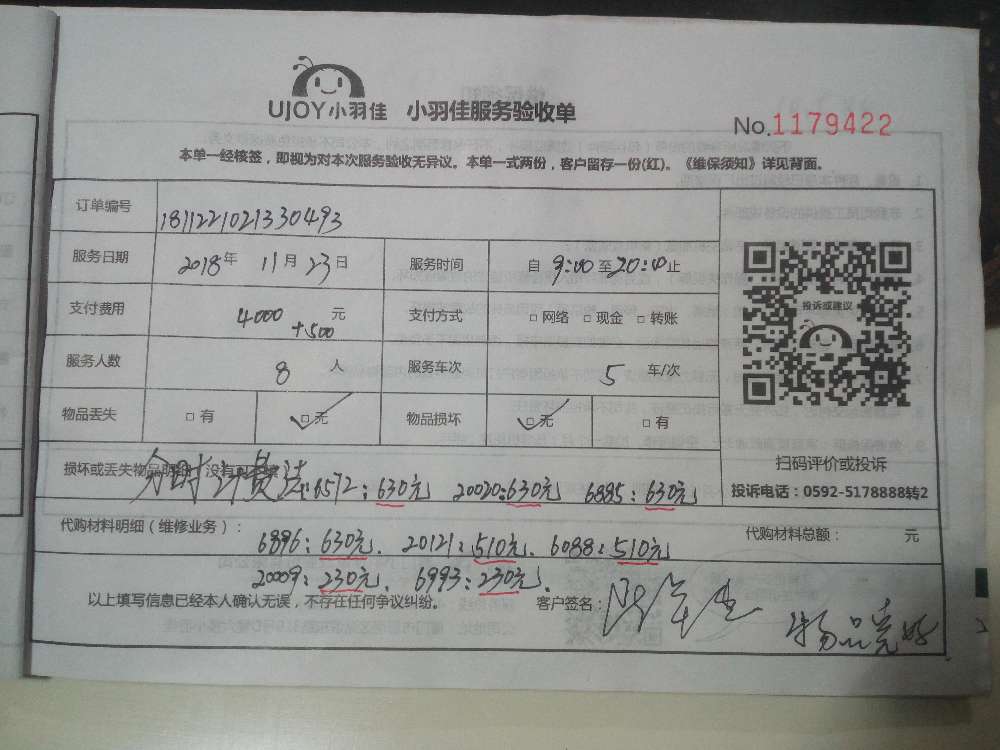 UJOY小羽佳 小羽佳服务验收单
No.1179422
本单一经核签，即视为对本次服务验收无异议。本单一式两份，客户留存一份(红)。《维保须知》详见背面。
订单编号 181122102133049​3
服务日期 2018年 11月23日 服务时间 自 9:00至20:00止
支付费用 4000+500 元 支付方式 □网络 □现金 □转账
投诉或建议
服务人数 8 人 服务车次 5 车/次
物品丢失 □有 ☑无 物品损坏 ☑无 □有
扫码评价或投诉
损坏或丢失物品明细 没有可
分时计费法:6572:630元 20020:630元 6885:630元
投诉电话：0592-5178888转2
代购材料明细（维修业务）： 代购材料总额： 元
6896:630元. 20121:510元. 6088:510元
20009:230元. 6993:230元.
以上填写信息已经本人确认无误，不存在任何争议纠纷。 客户签名：